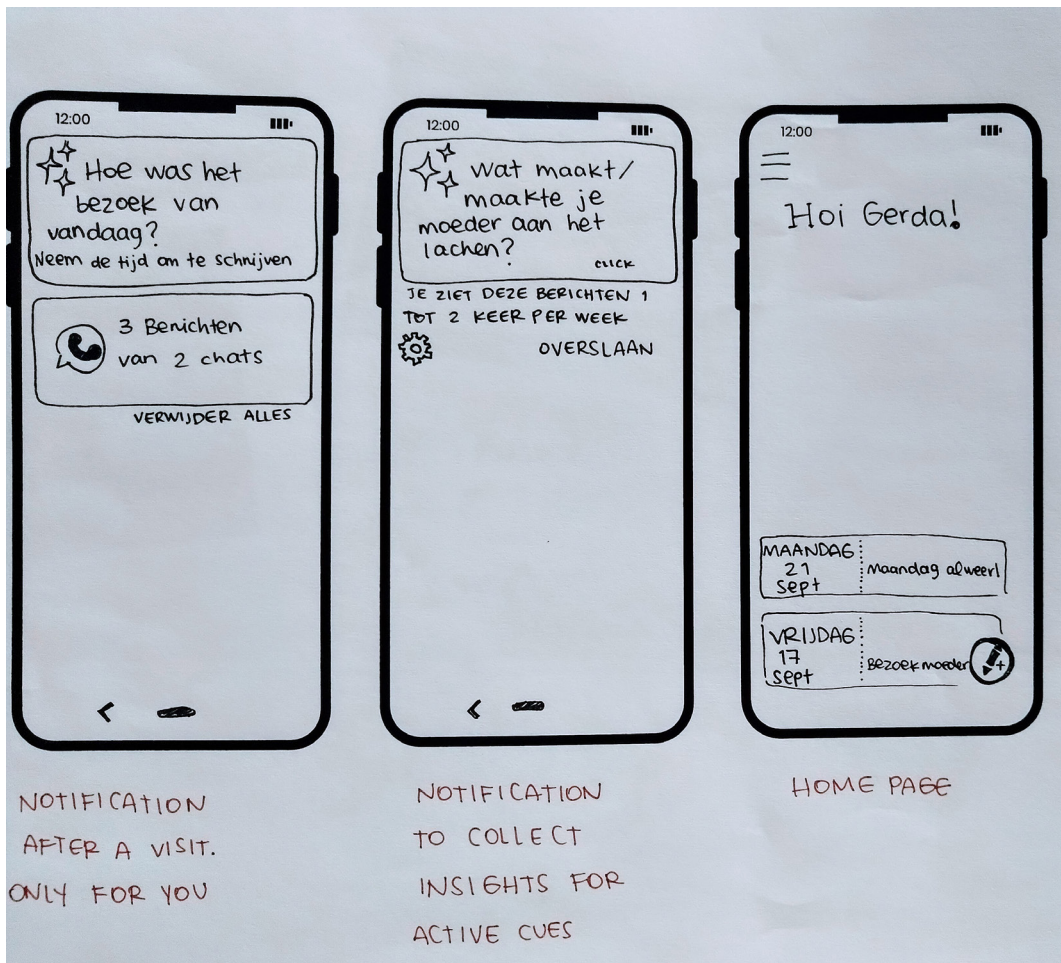 12:00
Hoe was het
bezoek van
vandaag?
Neem de tijd om te schrijven
3 Berichten
van 2 chats
VERWIJDER ALLES
NOTIFICATION
AFTER A VISIT.
ONLY FOR YOU
12:00
Wat maakt/
maakte je
moeder aan het
lachen?
CLICK
JE ZIET DEZE BERICHTEN 1
TOT 2 KEER PER WEEK
OVERSLAAN
NOTIFICATION
TO COLLECT
INSIGHTS FOR
ACTIVE CUES
12:00
Hoi Gerda!
MAANDAG
21
Sept
Maandag alweer!
VRIJDAG
17
Sept
Bezoek moeder
HOME PAGE